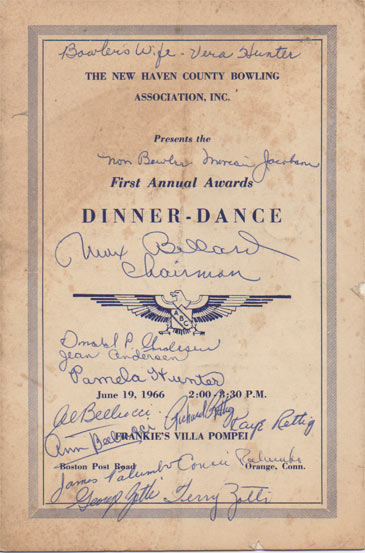 Bowler's Wife - Vera Hunter
THE NEW HAVEN COUNTY BOWLING
ASSOCIATION, INC.
Presents the
Non Bowler Jacobson
First Annual Awards
DINNER-DANCE
Max Bellard
Chairman
Donald P.
Jean Andersen
Pamela Hunter
June 19, 1966 2:00-8:30 P.M.
Al Bellucci Richard Rettig Kaye Rettig
Ann Bellucci
FRANKIE'S VILLA POMPEI
Boston Post Road Orange, Conn.
James Palumbo Connie Palumbo
George Zotti Terry Zotti